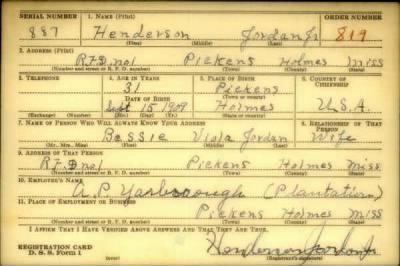 SERIAL NUMBER 1. NAME (Print) ORDER NUMBER
887 Henderson Jordan Jr 819
(First) (Middle) (Last)
2. ADDRESS (Print)
R.F.D. no 1 Pickens Holmes Miss
(Number and street or R. F. D. number) (Town) (County) (State)
3. TELEPHONE 4. AGE IN YEARS 5. PLACE OF BIRTH 6. COUNTRY OF CITIZENSHIP
31 Pickens
DATE OF BIRTH (Town or county)
Sept 15 1909 Holmes U.S.A.
(Exchange) (Number) (Mo.) (Day) (Yr.) (State or country)
7. NAME OF PERSON WHO WILL ALWAYS KNOW YOUR ADDRESS 8. RELATIONSHIP OF THAT PERSON
Bessie Viola Jordan Wife
(Mr., Mrs., Miss) (First) (Middle) (Last)
9. ADDRESS OF THAT PERSON
R.F.D. no 1 Pickens Holmes Miss
(Number and street or R. F. D. number) (Town) (County) (State)
10. EMPLOYER'S NAME
Yarbrough (Plantation)
11. PLACE OF EMPLOYMENT OR BUSINESS
Pickens Holmes Miss
(Number and street or R. F. D. number) (Town) (County) (State)
I AFFIRM THAT I HAVE VERIFIED ABOVE ANSWERS AND THAT THEY ARE TRUE.
REGISTRATION CARD
D. S. S. Form 1 Henderson Jordan Jr
(Registrant's signature)